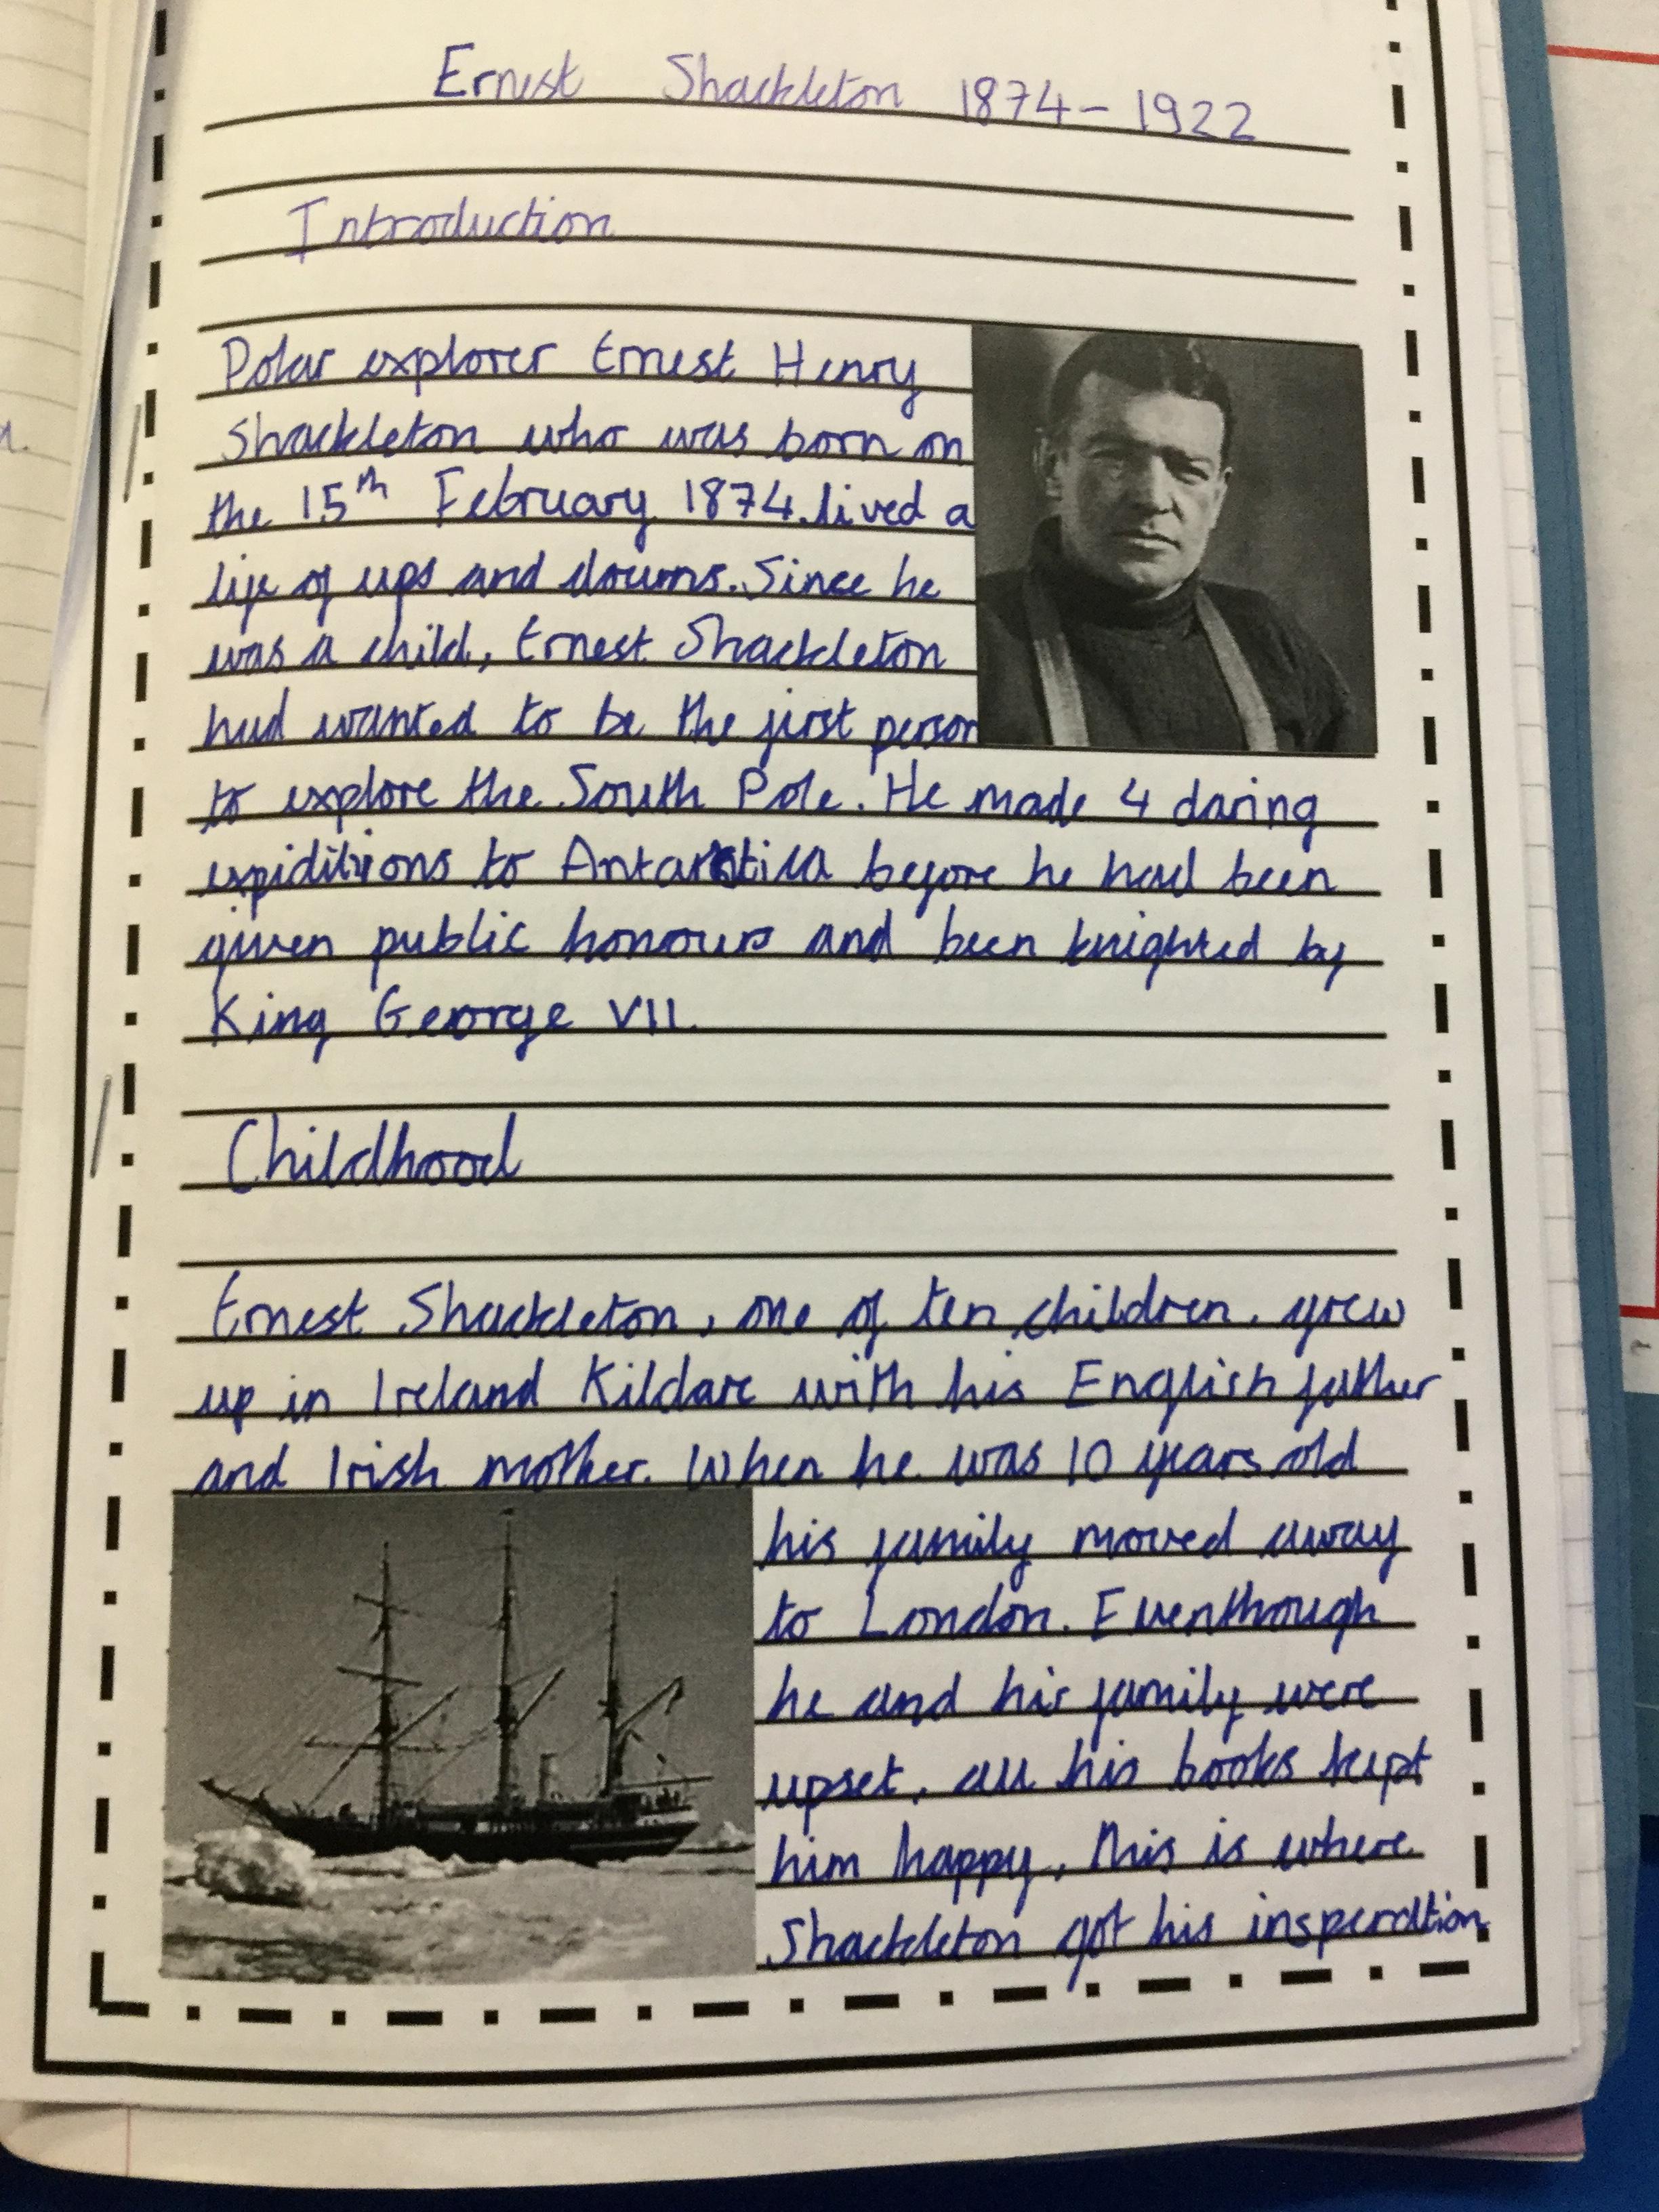 Ernest Shackleton 1874-1922
Introduction
Polar explorer Ernest Henry
Shackleton who was born on
the 15th February 1874, lived a
life of ups and downs. Since he
was a child, Ernest Shackleton
had wanted to be the first person
to explore the South Pole. He made 4 daring
expiditions to Antarctica before he had been
given public honours and been knighted by
King George VII.
Childhood
Ernest Shackleton, one of ten children, grew
up in Ireland Kildare with his English father
and Irish mother. When he was 10 years old
his family moved away
to London. Eventhough
he and his family were
upset, all his books kept
him happy, this is where
Shackleton got his insperation.